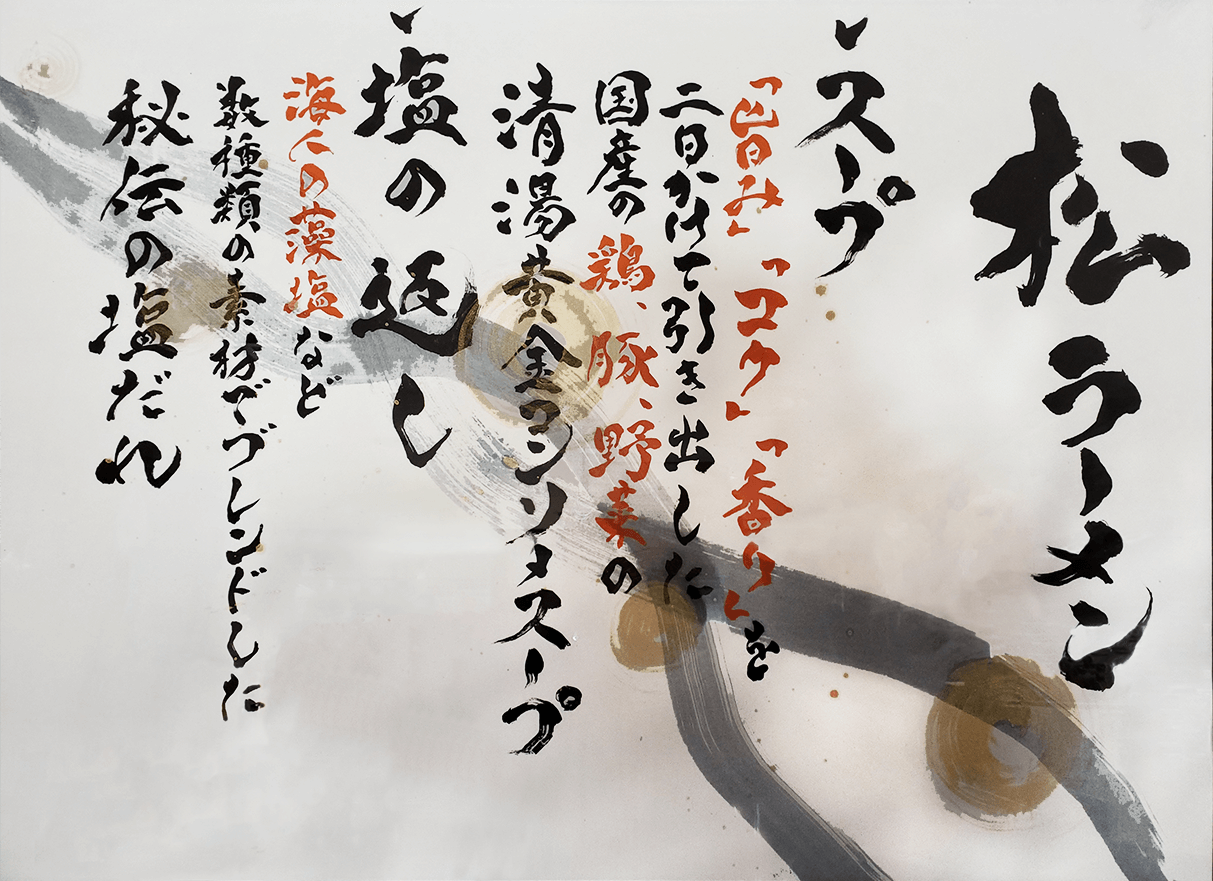 松ラーメン
スープ
「旨み」「コク」「香り」を
二日かけて引き出した
国産の鶏、豚、野菜の
清湯黄金コンソメスープ
塩の返し
海人の藻塩など
数種類の素材でブレンドした
秘伝の塩だれ